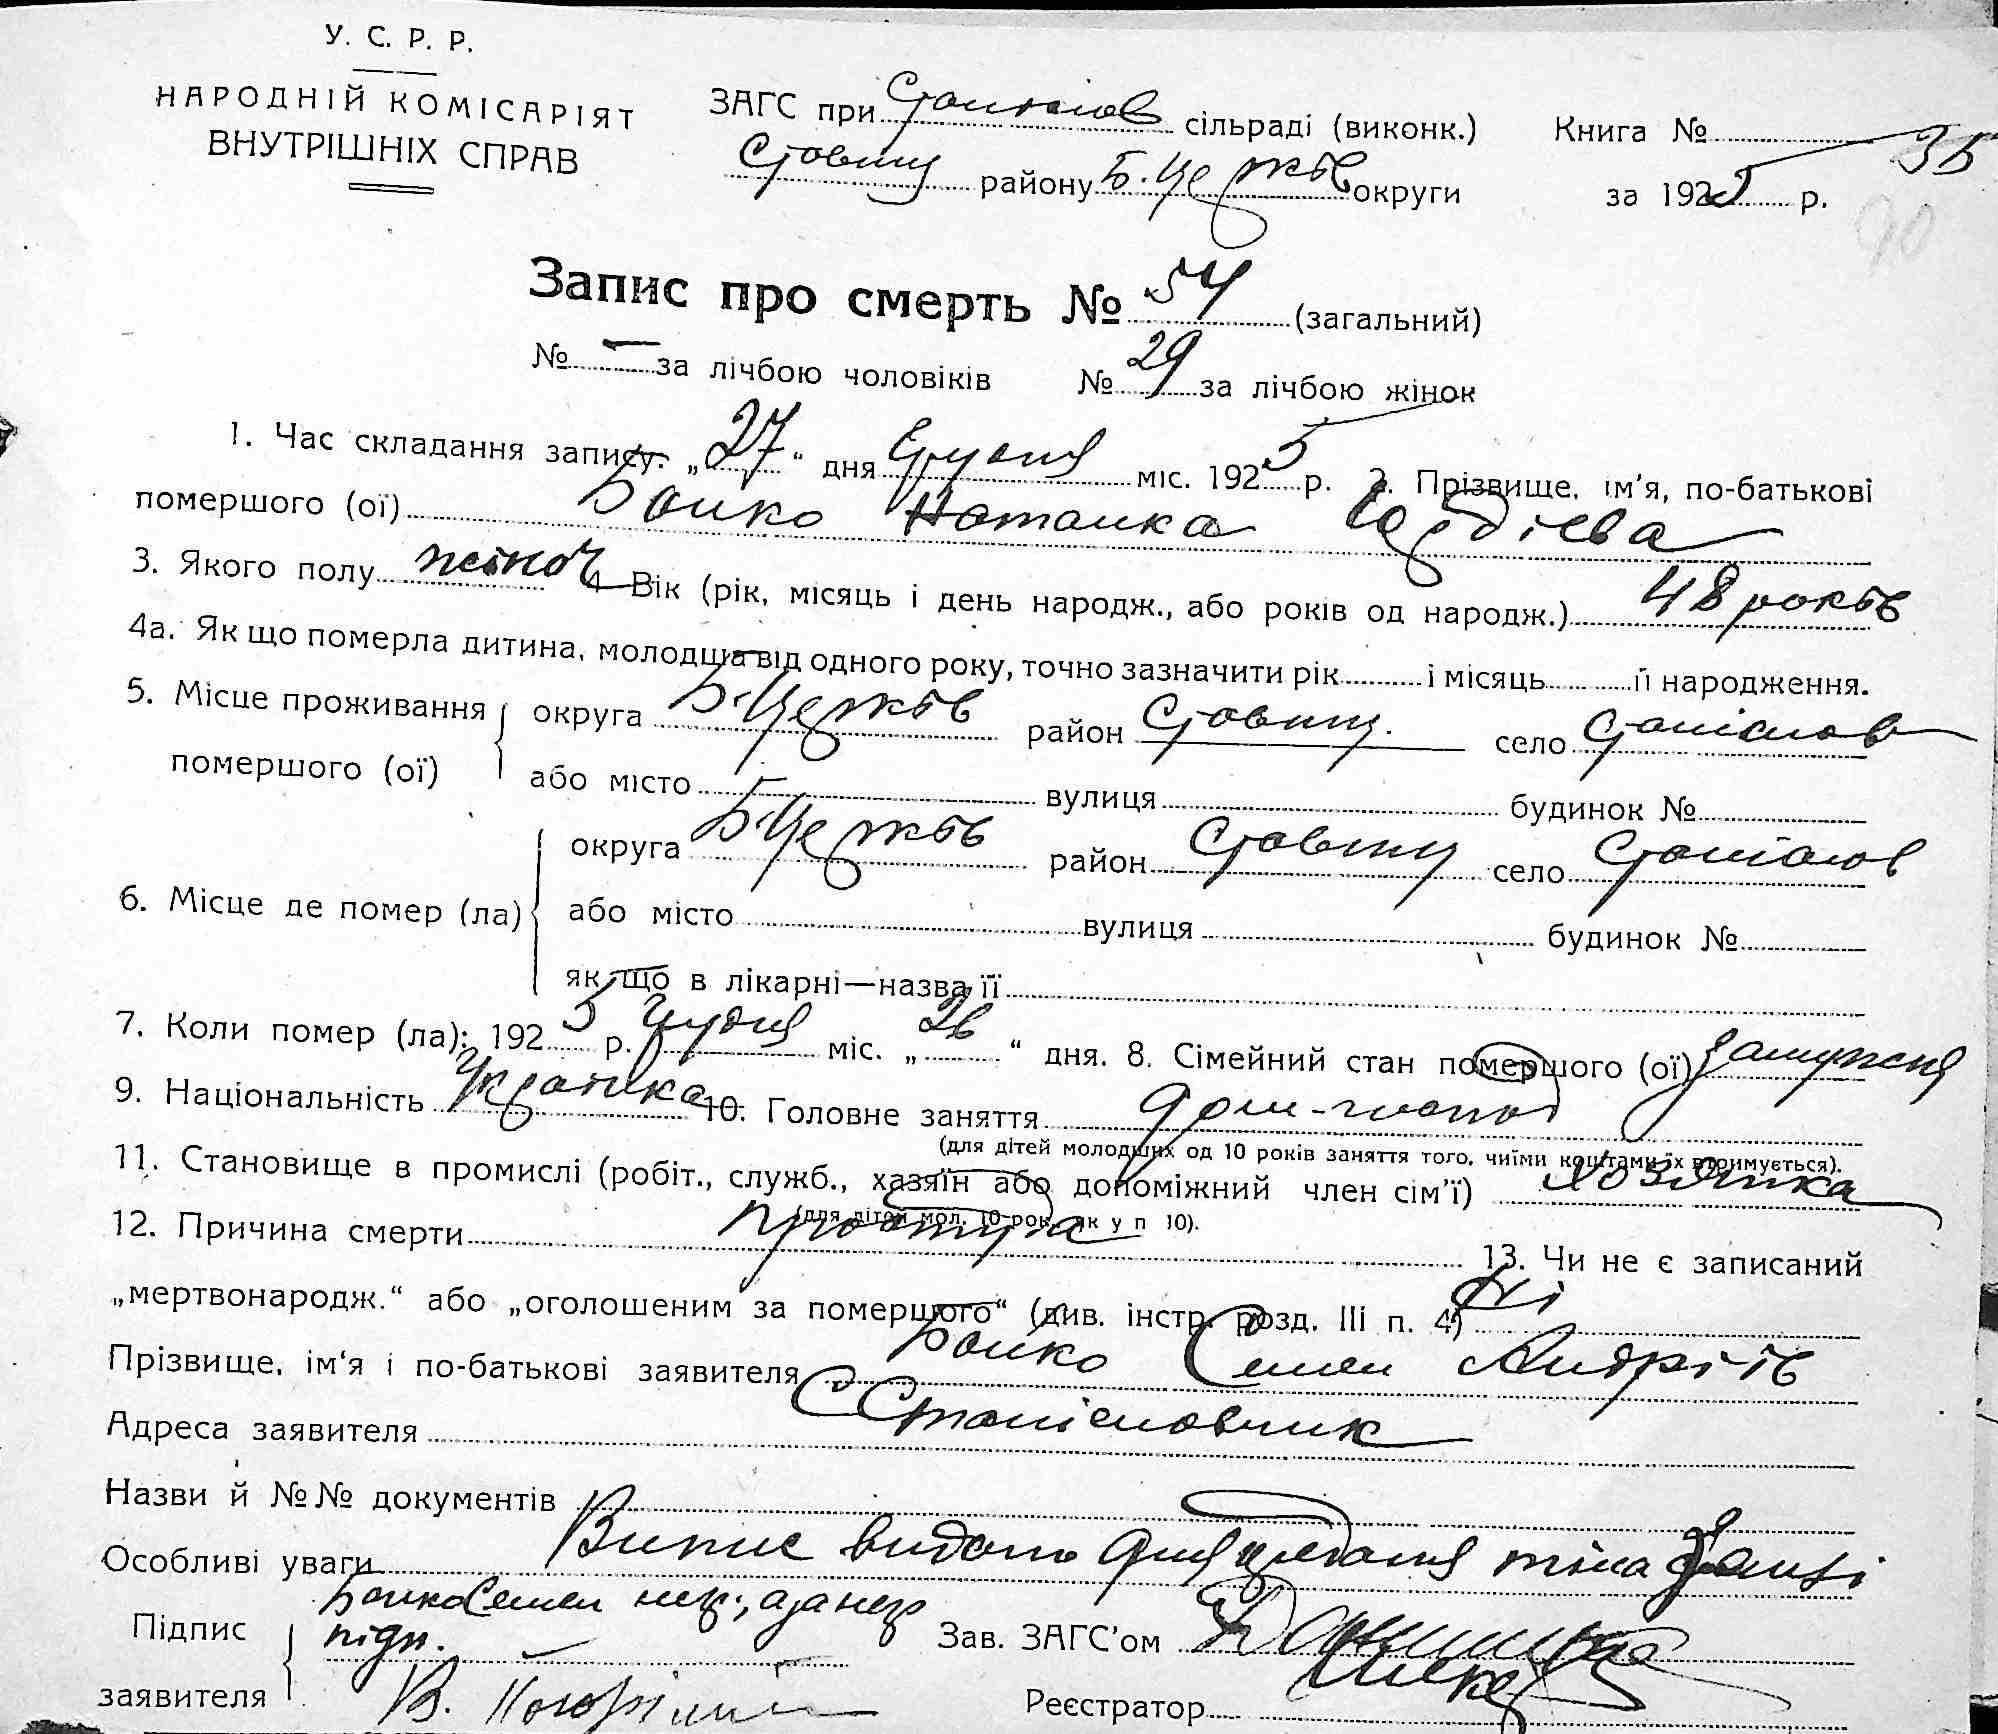 У. С. Р. Р.
НАРОДНІЙ КОМІСАРІЯТ
ВНУТРІШНІХ СПРАВ
ЗАГС при Станіслов сільраді (виконк.)
Ставищ району Б. Церків округи
Книга №
за 1925 р.
35
90
Запис про смерть № 54 (загальний)
№ — за лічбою чоловіків № 29 за лічбою жінок
1. Час складання запису: „27“ дня Грудня міс. 1925 р. 2. Прізвище, ім'я, по-батькові
помершого (ої) Бойко Наталка
3. Якого полу жіноч 4 Вік (рік, місяць і день народж., або років од народж.) 48 років
4а. Як що померла дитина, молодша від одного року, точно зазначити рік і місяць її народження.
5. Місце проживання помершого (ої) округа Б. Церків район Ставищ. село Станіслов
або місто вулиця будинок №
6. Місце де помер (ла) округа Б. Церків район Ставищ село Станіслов
або місто вулиця будинок №
як що в лікарні—назва її
7. Коли помер (ла): 1925 р. Грудня міс. „26“ дня. 8. Сімейний стан помершого (ої) замужня
9. Національність Українка 10. Головне заняття дом-господ
(для дітей молодших од 10 років заняття того, чиїми коштами їх втримується).
11. Становище в промислі (робіт., служб., хазяїн або допоміжний член сім'ї) хозяйка
(для дітей мол. 10 рок. як у п 10).
12. Причина смерти простуда 13. Чи не є записаний
„мертвонародж.“ або „оголошеним за помершого“ (див. інстр. розд. III п. 4) Ні
Прізвище, ім'я і по-батькові заявителя Бойко Семен Андріїв
Адреса заявителя С Станіславчик
Назви й №№ документів
Особливі уваги Випис видано для предання тіла землі
Підпис заявителя Бойко Семен непр., а за непр
підп.
Зав. ЗАГС'ом
Реєстратор